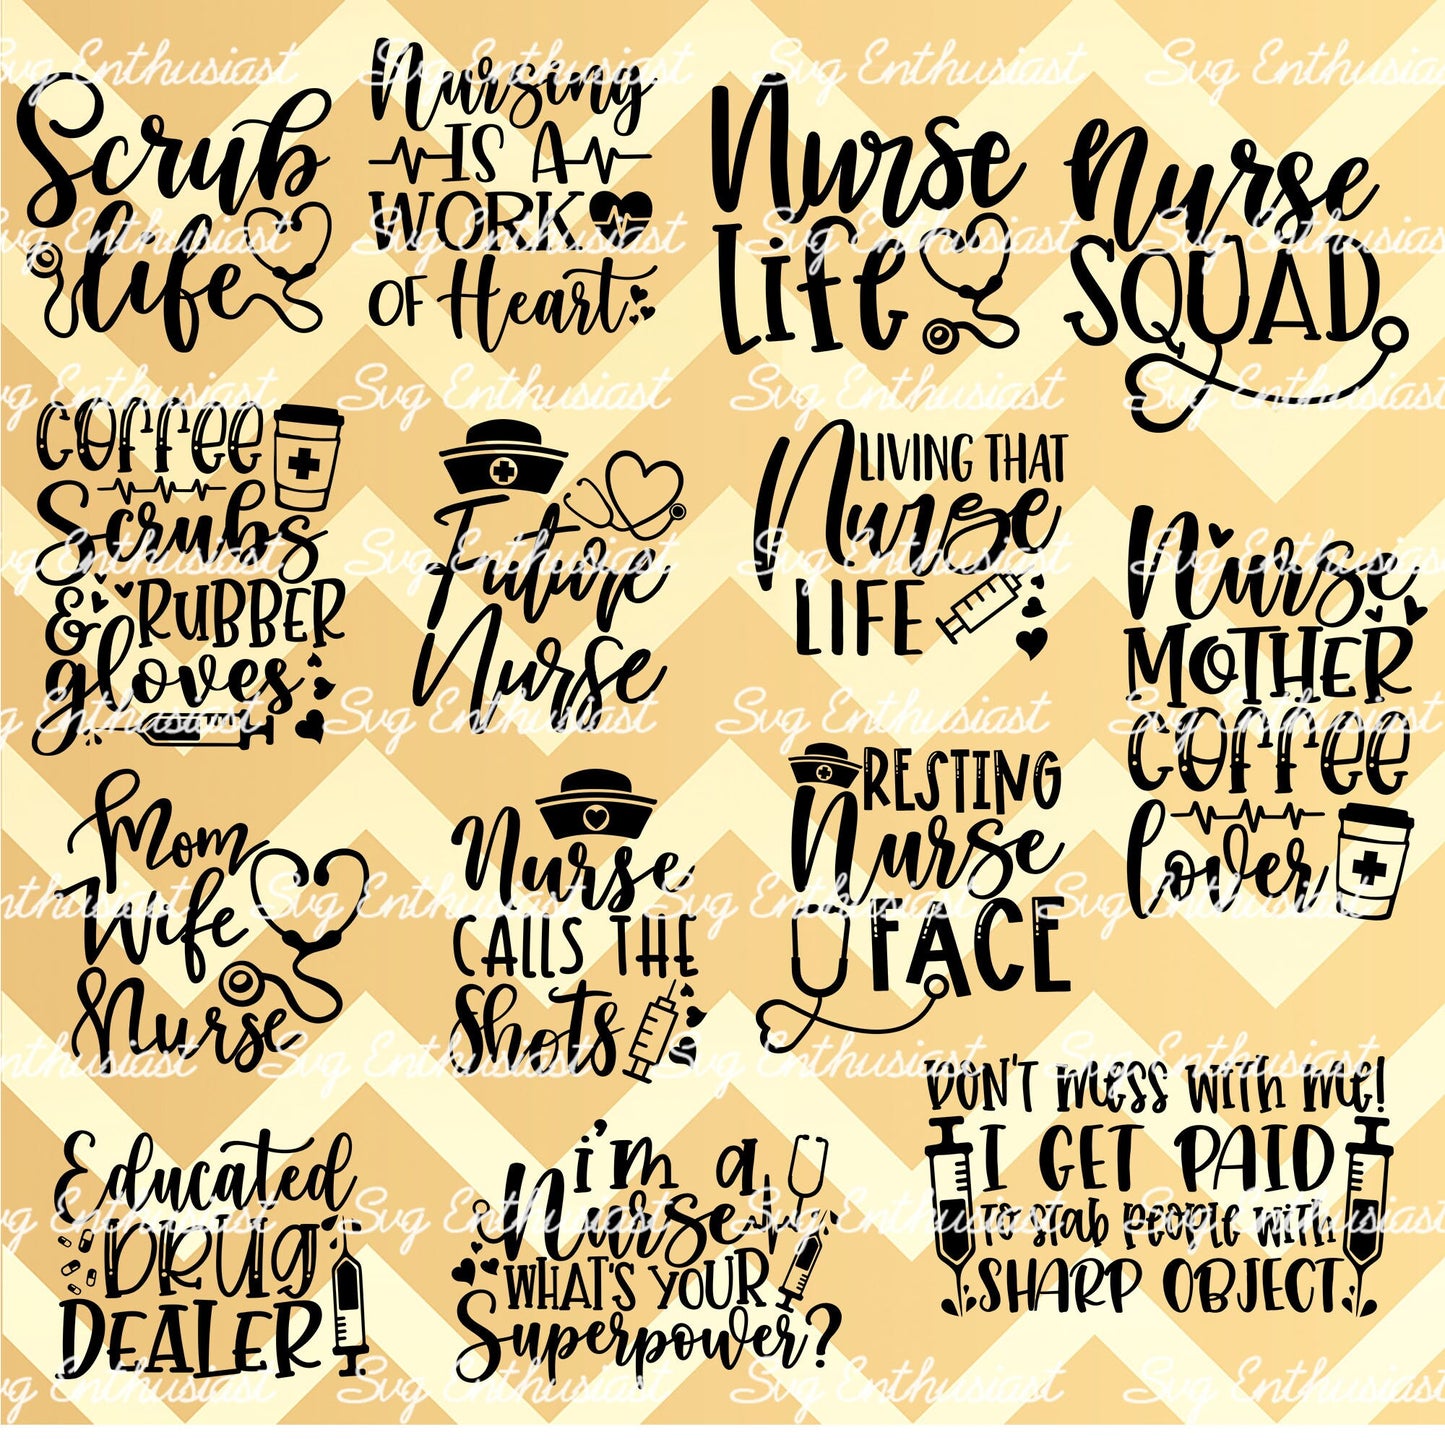 Scrub
life
Nursing
IS A
WORK
OF Heart
Nurse
LIFE
Nurse
SQUAD
COFFEE
Scrubs
& RUBBER
gloves
Future
Nurse
LIVING THAT
Nurse
LIFE
Nurse
MOTHER
COFFEE
lover
Mom
Wife
Nurse
Nurse
CALLS THE
Shots
RESTING
Nurse
FACE
Educated
DRUG
DEALER
i'm a
Nurse
WHAT'S YOUR
Superpower?
DON'T mess with me!
I GET PAID
To stab people with
SHARP OBJECT.
Svg Enthusiast